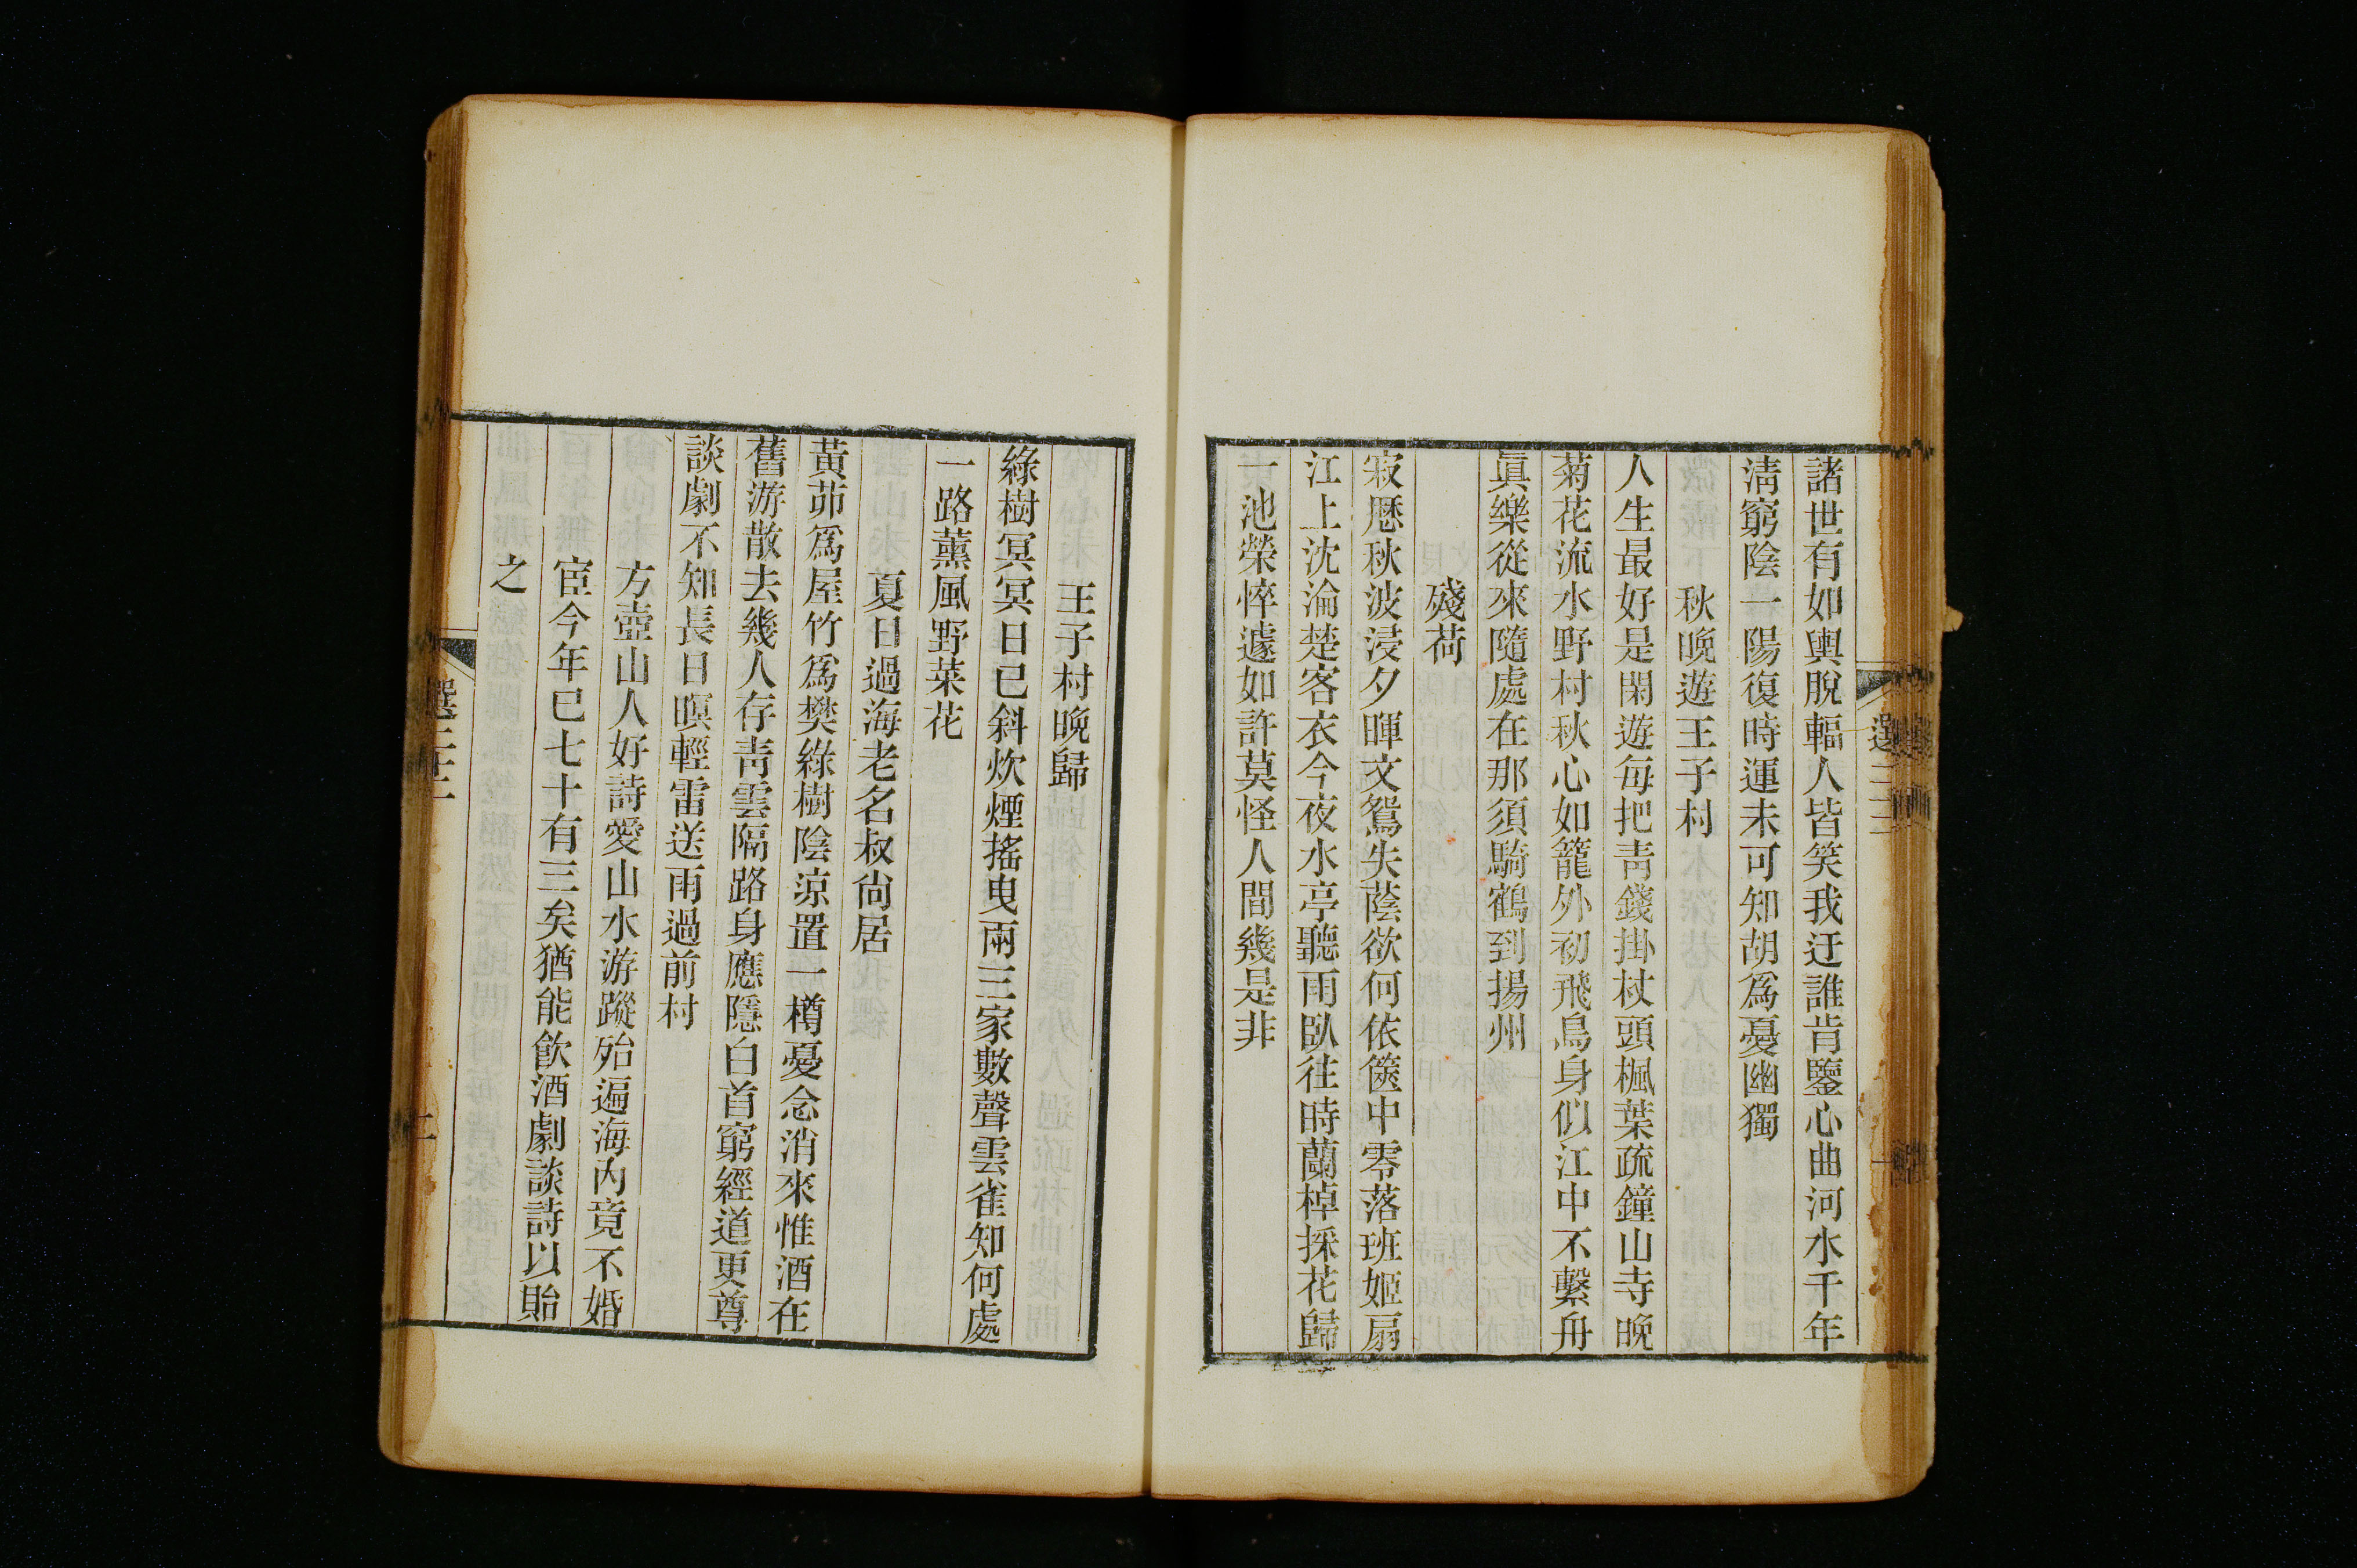 諸世有如輿脫輻人皆笑我迂誰肯鑒心曲河水千年
淸窮陰一陽復時運未可知胡爲憂幽獨
秋晩遊王子村
人生最好是閑遊每把靑錢掛杖頭楓葉疏鐘山寺晩
菊花流水野村秋心如籠外初飛鳥身似江中不繫舟
眞樂從來隨處在那須騎鶴到揚州
殘荷
寂歷秋波浸夕暉文鴛失蔭欲何依篋中零落班姬扇
江上沈淪楚客衣今夜水亭聽雨臥往時蘭棹採花歸
一池榮悴遽如許莫怪人間幾是非
王子村晩歸
綠樹冥冥日已斜炊煙搖曳兩三家數聲雲雀知何處
一路薰風野菜花
夏日過海老名叔尙居
黃茆爲屋竹爲樊綠樹陰涼置一樽憂念消來惟酒在
舊游散去幾人存靑雲隔路身應隱白首窮經道更尊
談劇不知長日暝輕雷送雨過前村
方壺山人好詩愛山水游蹤殆遍海內竟不婚
宦今年巳七十有三矣猶能飮酒劇談詩以貽
之